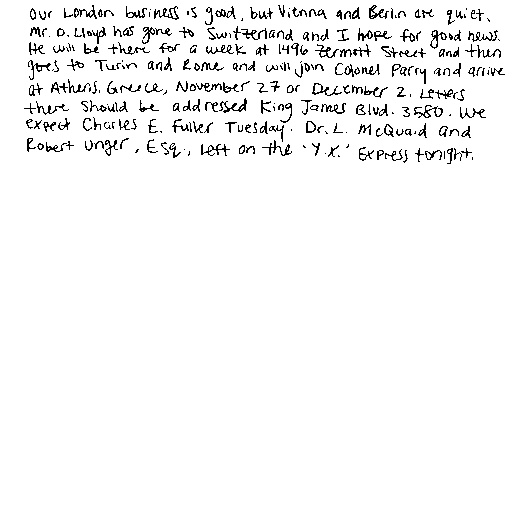 Our London business is good, but Vienna and Berlin are quiet.
Mr. D. Lloyd has gone to Switzerland and I hope for good news.
He will be there for a week at 1496 Zermott Street and then
goes to Turin and Rome and will join Colonel Parry and arrive
at Athens. Greece, November 27 or December 2. Letters
there should be addressed King James Blvd. 3580. We
expect Charles E. Fuller Tuesday. Dr. L. McQuaid and
Robert Unger, Esq., left on the 'Y.X.' Express tonight.